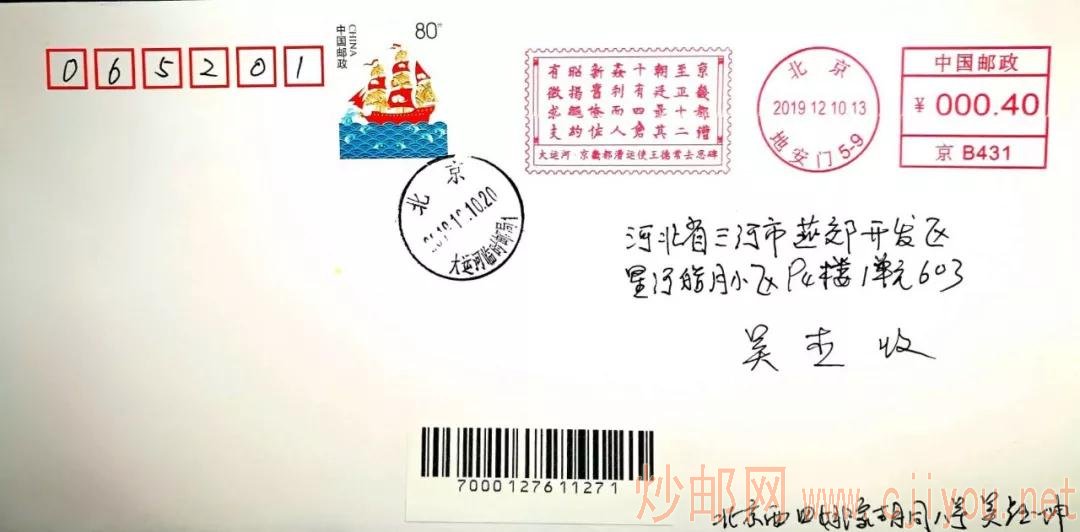 065201
80分
中国邮政
CHINA
有昭新兹十朝至京
徵揭旧利有廷正畿
求绳俗而四最十都
夫约佐人仓其二漕
大运河·京畿都漕运使王德常去思碑
北京
2019 12 10 13
地安门 5-9
中国邮政
¥ 000.40
京 B431
北京
2019.12.10.20
大运河临时邮局
河北省三河市燕郊开发区
星河皓月小区P4楼1单元603
吴 杰 收
7000127611271
炒邮网 www.cjiyou.net
北京西四